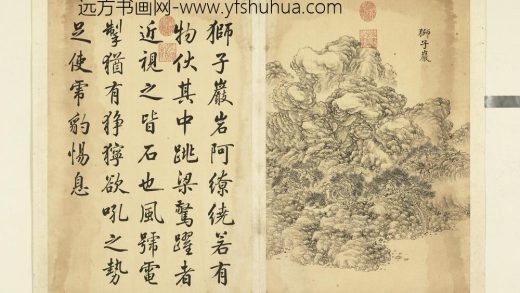 远方书画网-www.yfshuhua.com
獅子巖
獅子巖岩阿繚繞若有
物伏其中跳梁驚躍者
近視之皆石也風號電
掣猶有猙獰欲吼之勢
足使霧豹惕息